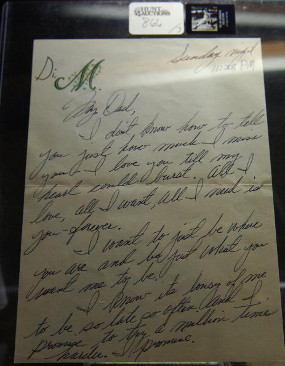 HUNT
AUCTIONS
866
Sunday night
Di M.
My Dad,
I don't know how to tell
you just how much I miss
you. I love you till my
heart could burst. All I
love, all I want, all I need is
you - forever.
I want to just be where
you are and be just what you
want me to be.
I know it's lousy of me
to be so late so often and I
promise to try a million times
harder. I promise.